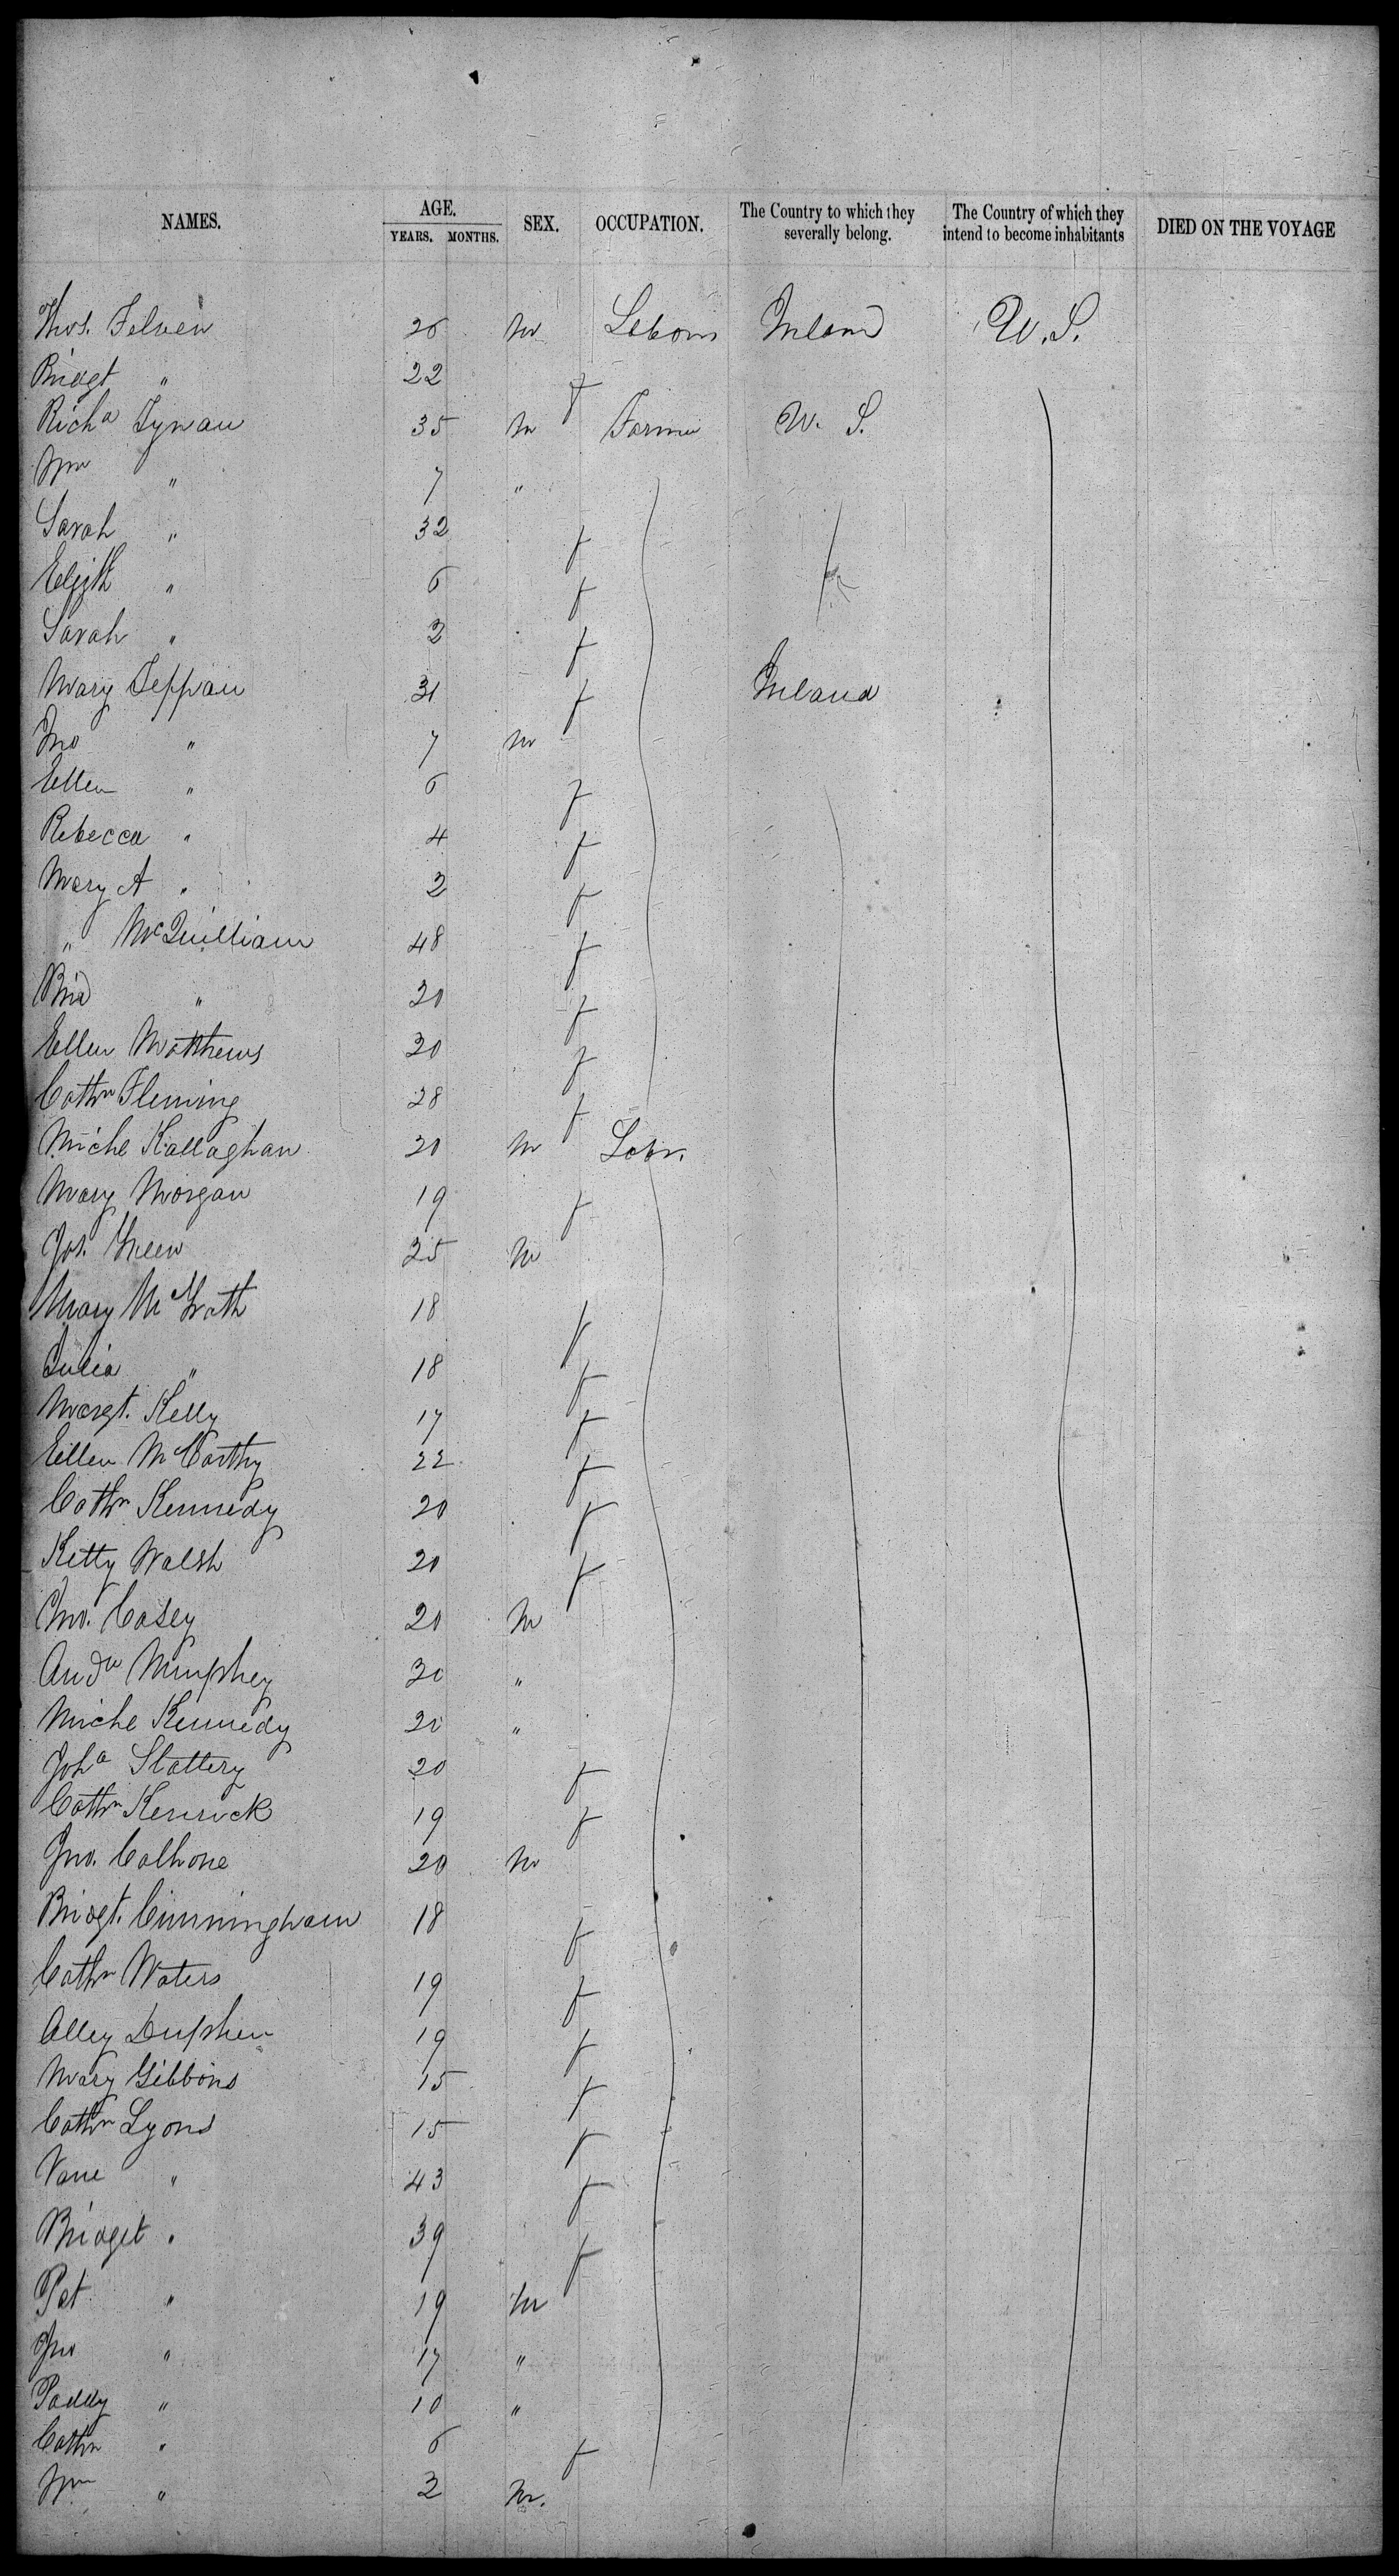 NAMES. AGE. YEARS. MONTHS. SEX. OCCUPATION. The Country to which they severally belong. The Country of which they intend to become inhabitants DIED ON THE VOYAGE
Thos. 26 m Ireland U.S.
Bridgt " 22 f
Richd Tynan 35 m Farmer U. S.
Wm " 7 "
Sarah " 32 f
Elizth " 6 f
Sarah " 2 f
Mary 31 f Ireland
Jno " 7 m
Ellen " 6 f
Rebecca " 4 f
Mary A " 2 f
" McQuilliam 48 f
Brid " 20 f
Ellen Matthews 20 f
Cathn Fleming 28 f
Michl Kallaghan 20 m Labr.
Mary Morgan 19 f
Jos. Green 25 m
Mary McGrath 18 f
Julia " 18 f
Margt. Kelly 17 f
Ellen McCarthy 22 f
Cathn Kennedy 20 f
Kitty Walsh 20 f
Jno. Casey 20 m
Andw Murphey 30 "
Michl Kennedy 20 "
Joha Slattery 20 f
Cathn Kenrick 19 f
Jno. Calhone 20 m
Bridgt. Cunningham 18 f
Cathn Waters 19 f
Alley 19 f
Mary Gibbons 15 f
Cathn Lyons 15 f
" 43 f
Bridget " 39 f
Pat " 19 m
Jno " 17 "
Paddy " 10 "
Cathn " 6 f
Wm " 2 m.